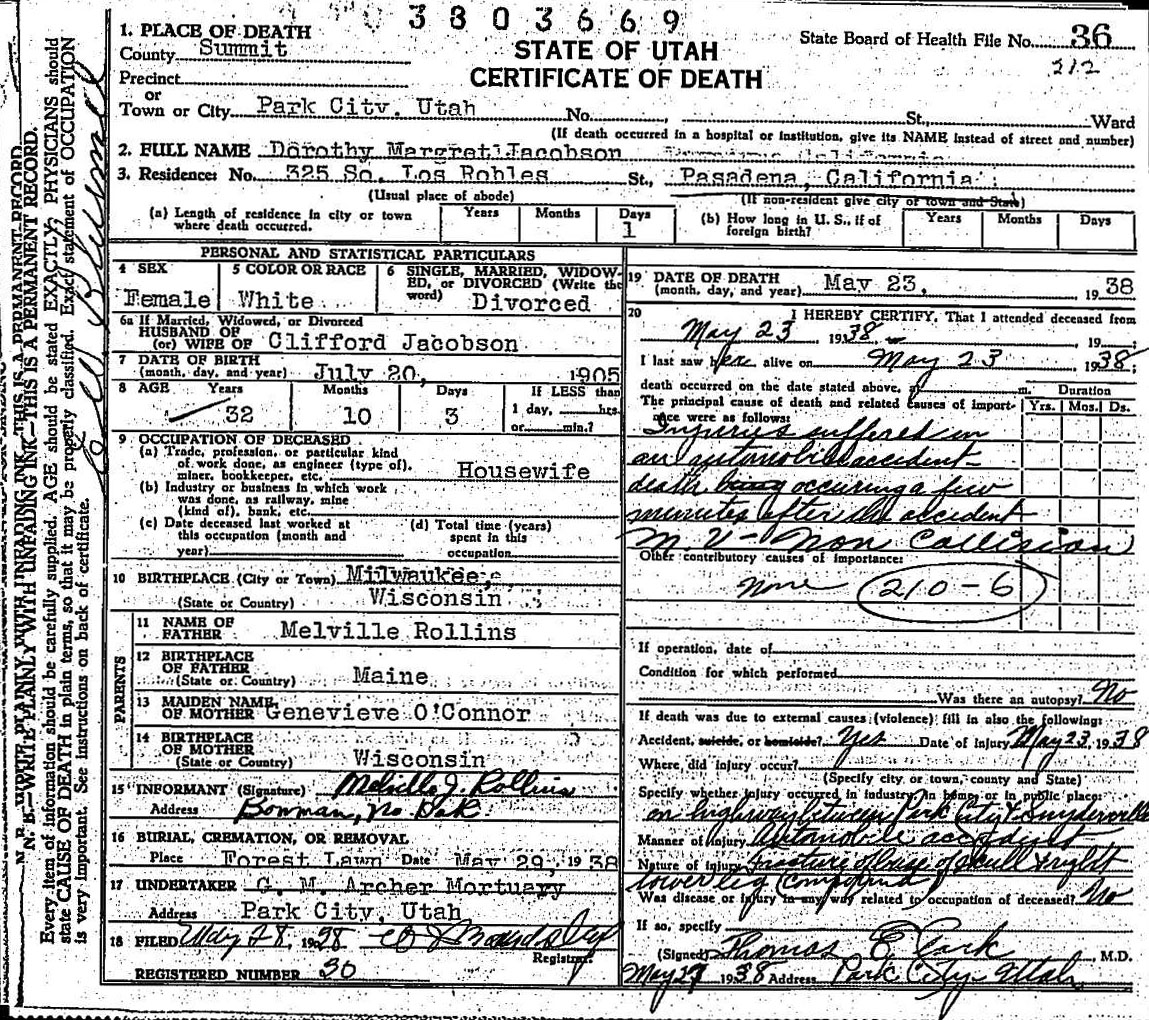 3803669
1. PLACE OF DEATH
County Summit
Precinct
or
Town or City Park City, Utah No. St., Ward
STATE OF UTAH
CERTIFICATE OF DEATH
State Board of Health File No. 36
212
(If death occurred in a hospital or institution, give its NAME instead of street and number)
2. FULL NAME Dorothy Margret Jacobson
3. Residence: No. 325 So. Los Robles St., Pasadena, California
(Usual place of abode) (If non-resident give city or town and State)
(a) Length of residence in city or town where death occurred. Years Months Days 1
(b) How long in U. S., if of foreign birth? Years Months Days
PERSONAL AND STATISTICAL PARTICULARS
4 SEX Female
5 COLOR OR RACE White
6 SINGLE, MARRIED, WIDOWED, or DIVORCED (Write the word) Divorced
6a If Married, Widowed, or Divorced
HUSBAND OF
(or) WIFE OF Clifford Jacobson
7 DATE OF BIRTH
(month, day, and year) July 20, 1905
8 AGE Years Months Days If LESS than
32 10 3 1 day, hrs.
or min.?
9 OCCUPATION OF DECEASED
(a) Trade, profession, or particular kind
of work done, as engineer (type of),
miner, bookkeeper, etc. Housewife
(b) Industry or business in which work
was done, as railway, mine
(kind of), bank, etc.
(c) Date deceased last worked at
this occupation (month and
year)
(d) Total time (years)
spent in this
occupation
10 BIRTHPLACE (City or Town) Milwaukee,
(State or Country) Wisconsin
PARENTS
11 NAME OF
FATHER Melville Rollins
12 BIRTHPLACE
OF FATHER
(State or Country) Maine
13 MAIDEN NAME
OF MOTHER Genevieve O'Connor
14 BIRTHPLACE
OF MOTHER
(State or Country) Wisconsin
15 INFORMANT (Signature) Melville J. Rollins
Address Bowman, No Dak.
16 BURIAL, CREMATION, OR REMOVAL
Place Forest Lawn Date May 29, 1938
17 UNDERTAKER G. M. Archer Mortuary
Address Park City, Utah
18 FILED May 28, 1938
Registrar
REGISTERED NUMBER 30
19 DATE OF DEATH
(month, day, and year) May 23, 1938
20 I HEREBY CERTIFY, That I attended deceased from
May 23 1938 19
I last saw her alive on May 23 1938;
death occurred on the date stated above, at m.
The principal cause of death and related causes of importance were as follows:
Duration
Yrs. Mos. Ds.
Injurys suffered in
an automobile accident-
death being occuring a few
minutes after the accident
M V - Non Collision
Other contributory causes of importance:
None 210-6
If operation, date of
Condition for which performed
Was there an autopsy? No
If death was due to external causes (violence) fill in also the following:
Accident, suicide, or homicide? Yes Date of injury May 23 1938
Where did injury occur?
(Specify city or town, county and State)
Specify whether injury occurred in industry, in home, or in public place:
on highway between Park City & Snyderville
Manner of injury Automobile accident
Nature of injury Fracture of base of skull & right
lower leg (compound)
Was disease or injury in any way related to occupation of deceased? No
If so, specify
(Signed) Thomas E Park, M.D.
May 27 1938 Address Park City Utah
N. B.—WRITE PLAINLY WITH UNFADING INK—THIS IS A PERMANENT RECORD.
Every item of information should be carefully supplied. AGE should be stated EXACTLY. PHYSICIANS should
state CAUSE OF DEATH in plain terms, so that it may be properly classified. Exact statement of OCCUPATION
is very important. See instructions on back of certificate.